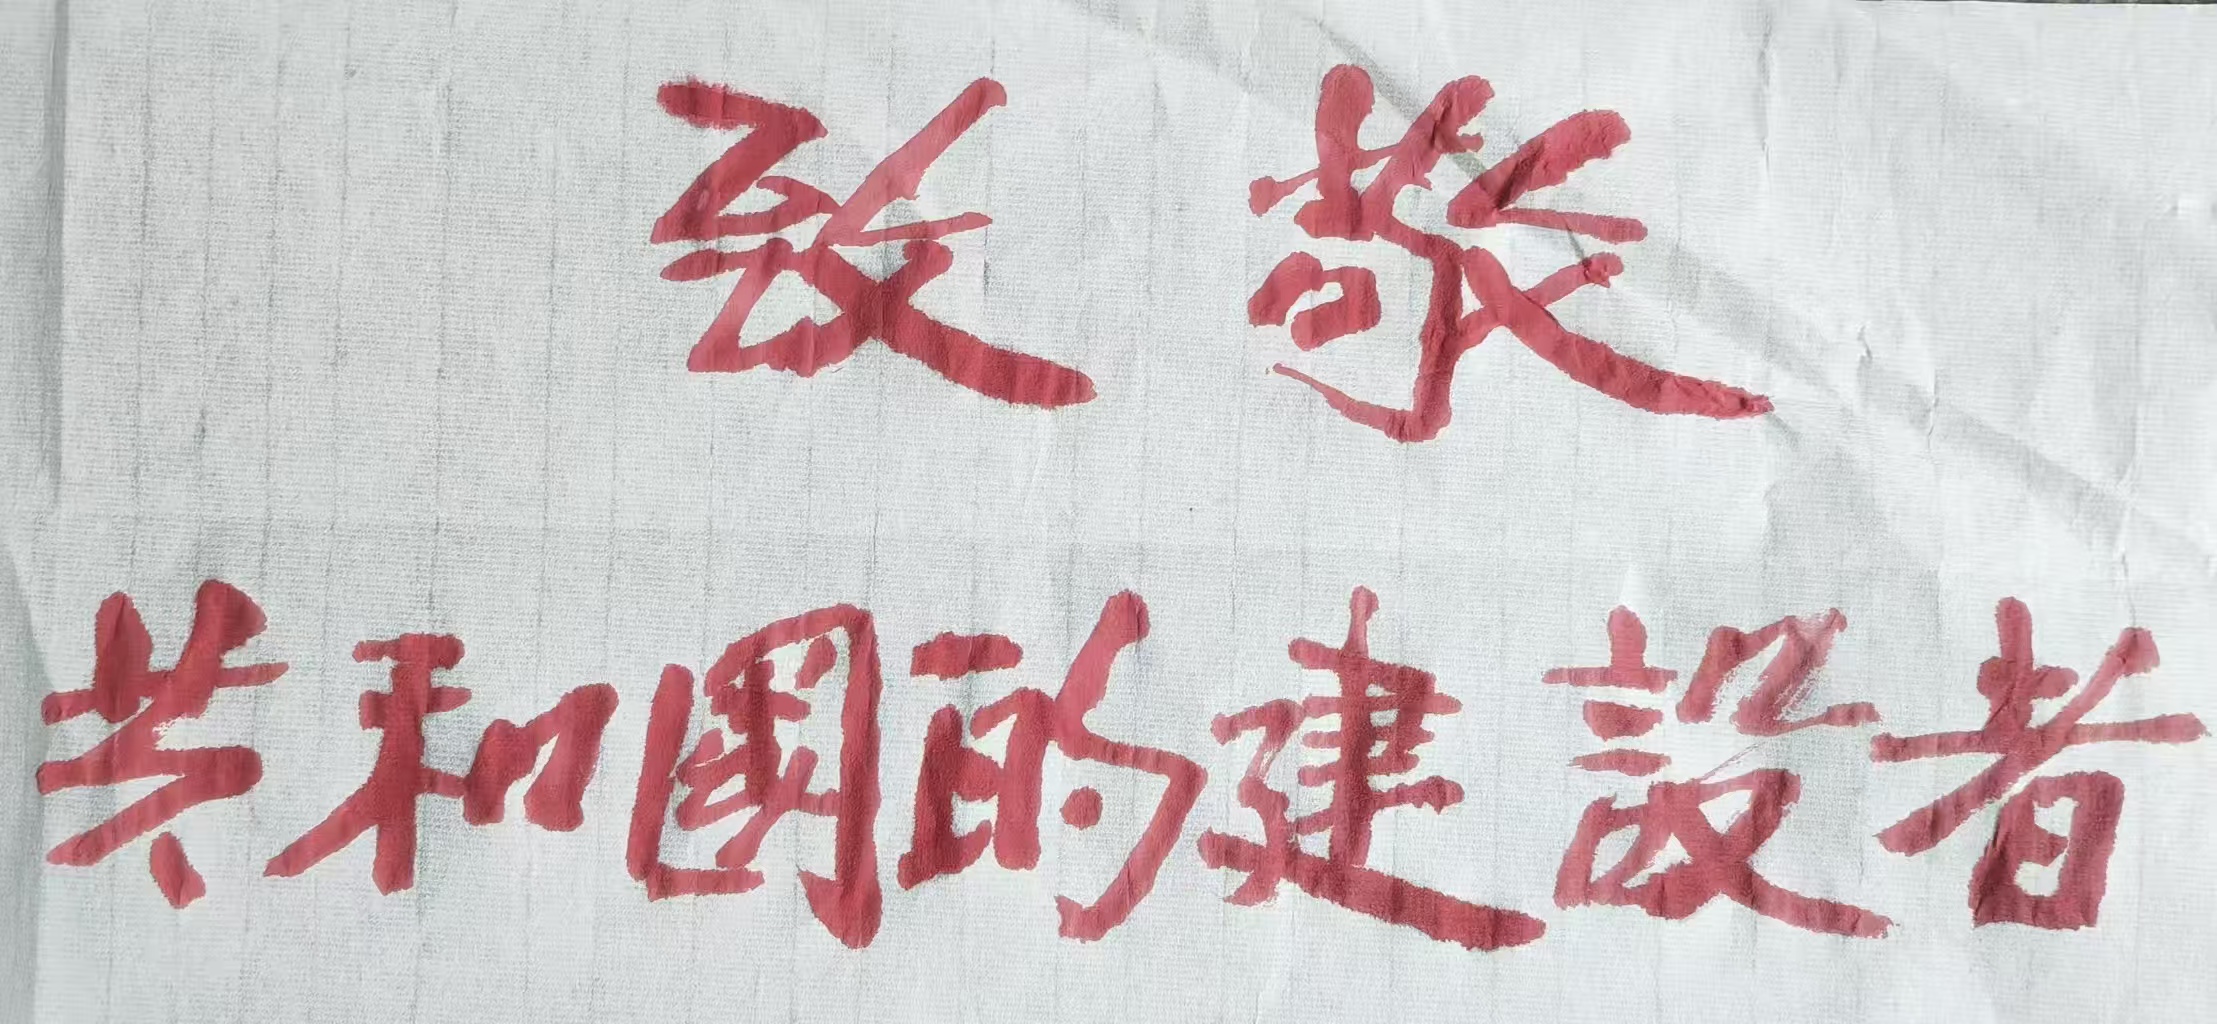 致敬
共和國的建設者